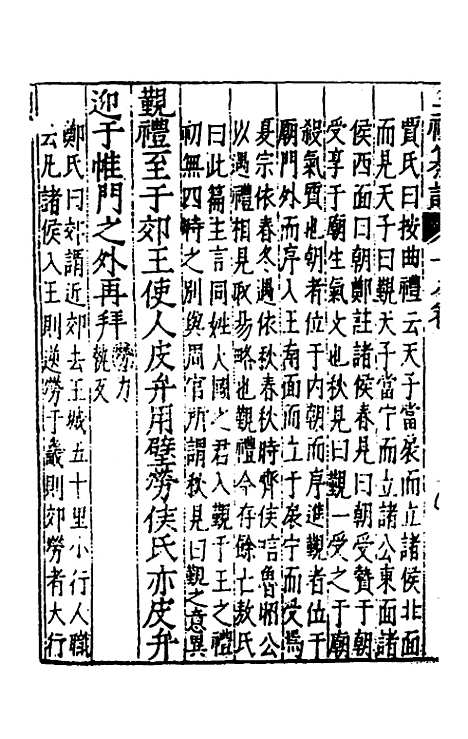 賈氏曰按曲禮云天子當扆而立諸侯北面
而見天子曰覲天子當宁而立諸公東面諸
侯西面曰朝鄭註諸侯春見曰朝受贄于朝
受享于廟生氣文也秋見曰覲一受之于廟
殺氣質也朝者位于内朝而序進覲者位于
廟門外而序入王南面而立于扆宁而受焉
夏宗依春冬遇依秋春秋時齊侯唁魯昭公
以遇禮相見取易略也覲禮今存餘亡敖氏
曰此篇主言同姓大國之君入覲于王之禮
初無四時之别與周官所謂秋見曰覲之意異
覲禮至于郊王使人皮弁用璧勞侯氏亦皮弁
迎于帷門之外再拜 勞力報反
鄭氏曰郊謂近郊去王城五十里小行人職
云凡諸侯入王則逆勞于畿則郊勞者大行